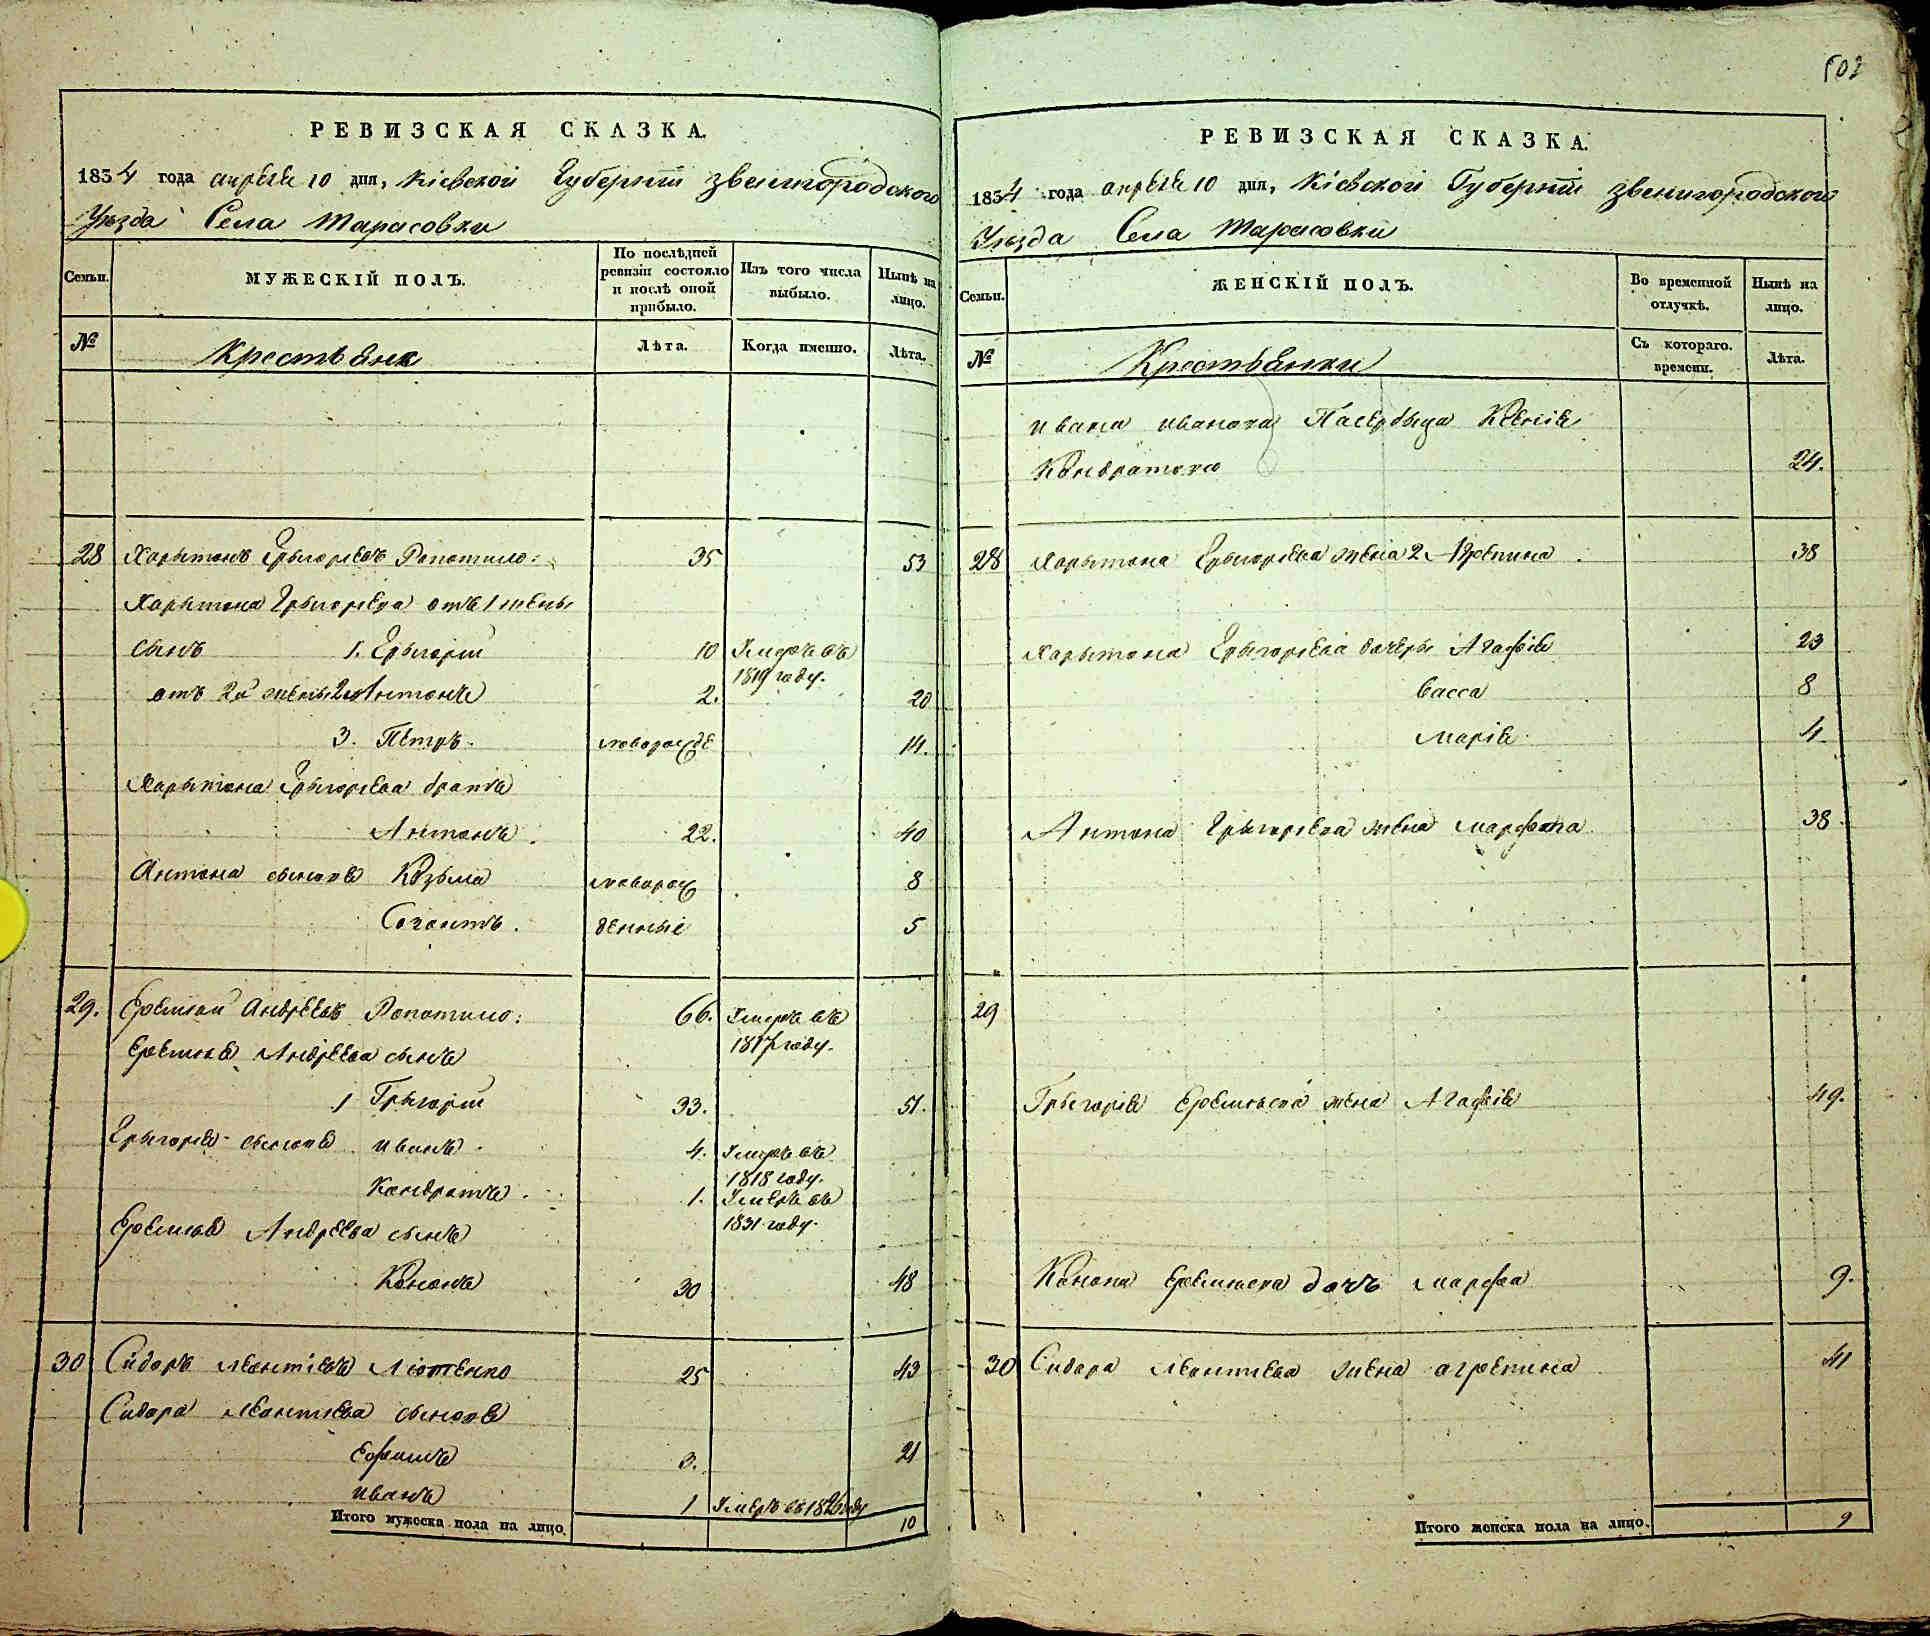 502
РЕВИЗСКАЯ СКАЗКА.
1834 года апреля 10 дня, Кіевской Губерніи Звенигородского
Уезда Села Тарасовки
Семьи.
МУЖЕСКІЙ ПОЛЪ.
По послѣдней ревизіи состояло и послѣ оной прибыло.
Изъ того числа выбыло.
Нынѣ на лицо.
№
Крестьяне
Лѣта.
Когда именно.
Лѣта.
28 Харытонъ Грыгорьевъ Ропотило: 35 53
Харытона Грыгорьева отъ 1 жены
сынъ 1. Грыгорій 10 Умеръ въ 1819 году.
отъ 2й жены 2й Антонъ 2. 20
3. Петръ. новорожде 14.
Харытона Грыгорьева братъ
Антонъ. 22. 40
Антона сыновя Козьма новорож 8
Созонтъ. денные 5
29. Ефремъ Андреевъ Ропотило: 66. Умеръ въ 1817 году.
Андреева сынъ
1 Грыгорій 33. 51.
Грыгорія сыновя Иванъ 4. Умеръ въ 1818 году.
Кондратъ. 1. Умеръ въ 1831 году.
Андреева сынъ
Кононъ 30 48
30 Сидоръ Леонтіевъ Лютенко 25 43
Сидора Леонтіева сыновя
Ефимъ 3. 21
Иванъ 1 Умеръ въ 1826 году
Итого мужеска пола на лицо. 10
РЕВИЗСКАЯ СКАЗКА.
1834 года апреля 10 дня, Кіевской Губерніи Звенигородского
Уезда Села Тарасовки
Семьи.
ЖЕНСКІЙ ПОЛЪ.
Во временной отлучкѣ.
Нынѣ на лицо.
№
Крестьянки
Съ котораго. времени.
Лѣта.
Ивана Иванова Ксенія
Кондратова 24.
28 Харытона Грыгорьева жена 2 Агрепина 38
Харытона Грыгорьева дочеры Агафія 23
Васса 8
Марія 4
Антона Грыгорьева жена Марфа 38
29
Грыгорія жена Агафія 49.
Конона дочъ Марфа 9.
30 Сидора Леонтиева жена Агрепина 41
Итого женска пола на лицо. 9